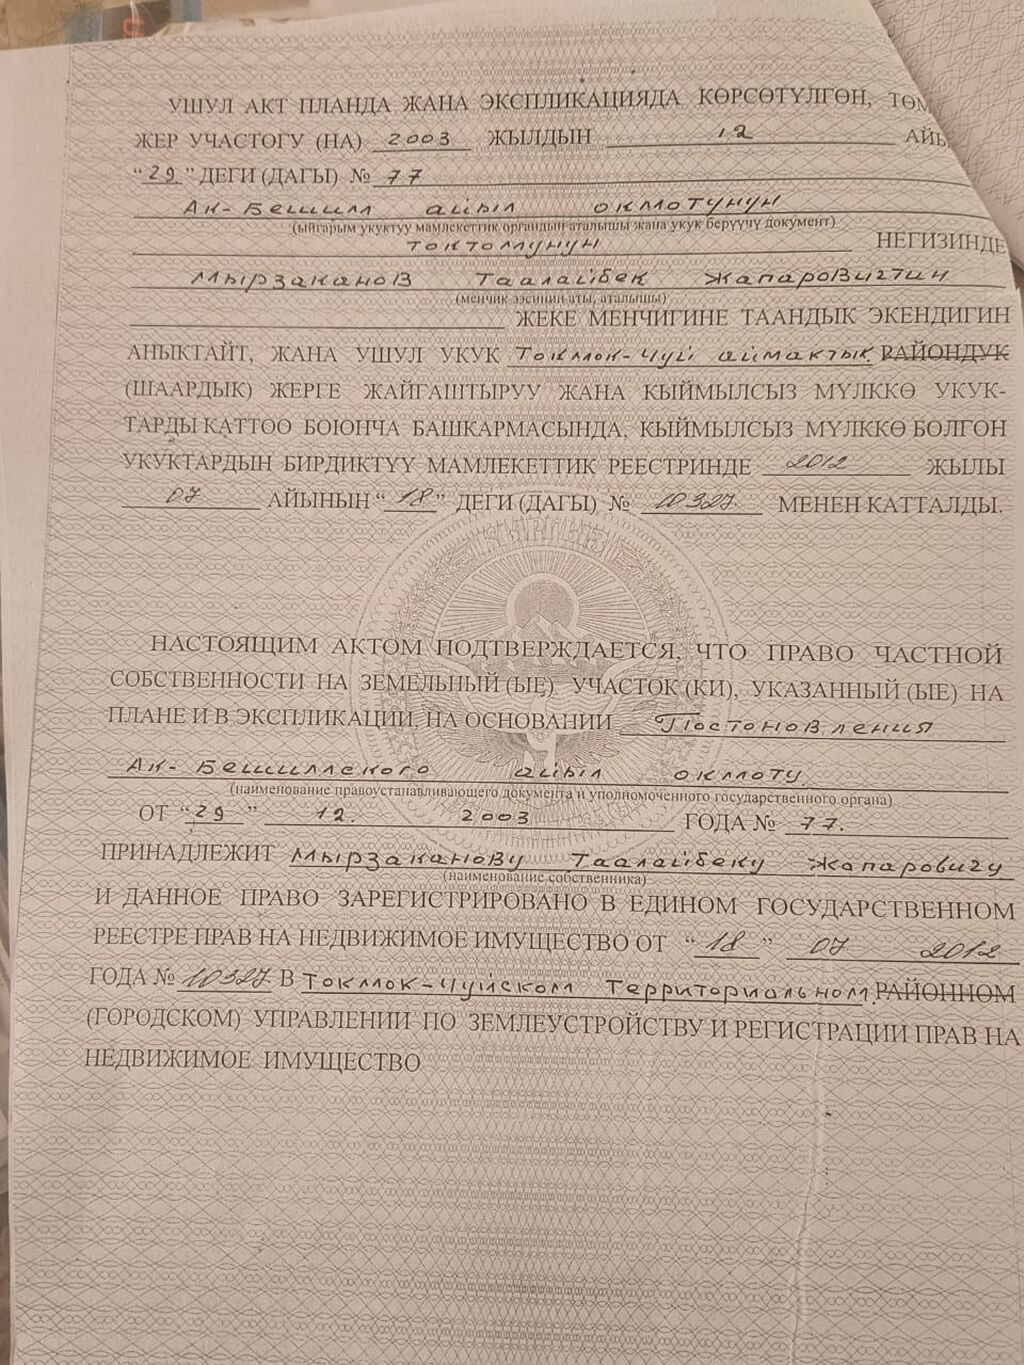 УШУЛ АКТ ПЛАНДА ЖАНА ЭКСПЛИКАЦИЯДА КӨРСӨТҮЛГӨН,
ЖЕР УЧАСТОГУ (НА) 2003 ЖЫЛДЫН 12
"29" ДЕГИ (ДАГЫ) № 77
Ак-Бешим айыл окмотунун
(ыйгарым укуктуу мамлекеттик органдын аталышы жана укук берүүчү документ)
токтомунун НЕГИЗИНДЕ
Мырзаканов Таалайбек Жапаровичтин
(менчик ээсинин аты, аталышы)
ЖЕКЕ МЕНЧИГИНЕ ТААНДЫК ЭКЕНДИГИН
АНЫКТАЙТ, ЖАНА УШУЛ УКУК Токмок-Чуй аймактык РАЙОНДУК
(ШААРДЫК) ЖЕРГЕ ЖАЙГАШТЫРУУ ЖАНА КЫЙМЫЛСЫЗ МҮЛККӨ УКУК-
ТАРДЫ КАТТОО БОЮНЧА БАШКАРМАСЫНДА, КЫЙМЫЛСЫЗ МҮЛККӨ БОЛГОН
УКУКТАРДЫН БИРДИКТҮҮ МАМЛЕКЕТТИК РЕЕСТРИНДЕ 2012 ЖЫЛЫ
07 АЙЫНЫН "18" ДЕГИ (ДАГЫ) № 10327. МЕНЕН КАТТАЛДЫ.
НАСТОЯЩИМ АКТОМ ПОДТВЕРЖДАЕТСЯ, ЧТО ПРАВО ЧАСТНОЙ
СОБСТВЕННОСТИ НА ЗЕМЕЛЬНЫЙ (ЫЕ) УЧАСТОК (КИ), УКАЗАННЫЙ (ЫЕ) НА
ПЛАНЕ И В ЭКСПЛИКАЦИИ, НА ОСНОВАНИИ Постоновления
Ак-Бешимлеского айыл окмоту
(наименование правоустанавливающего документа и уполномоченного государственного органа)
ОТ "29" 12. 2003 ГОДА № 77.
ПРИНАДЛЕЖИТ Мырзаканову Таалайбеку Жапаровичу
(наименование собственника)
И ДАННОЕ ПРАВО ЗАРЕГИСТРИРОВАНО В ЕДИНОМ ГОСУДАРСТВЕННОМ
РЕЕСТРЕ ПРАВ НА НЕДВИЖИМОЕ ИМУЩЕСТВО ОТ "18" 07 2012
ГОДА № 10327 В Токмок-Чуйском Территориальном РАЙОННОМ
(ГОРОДСКОМ) УПРАВЛЕНИИ ПО ЗЕМЛЕУСТРОЙСТВУ И РЕГИСТРАЦИИ ПРАВ НА
НЕДВИЖИМОЕ ИМУЩЕСТВО